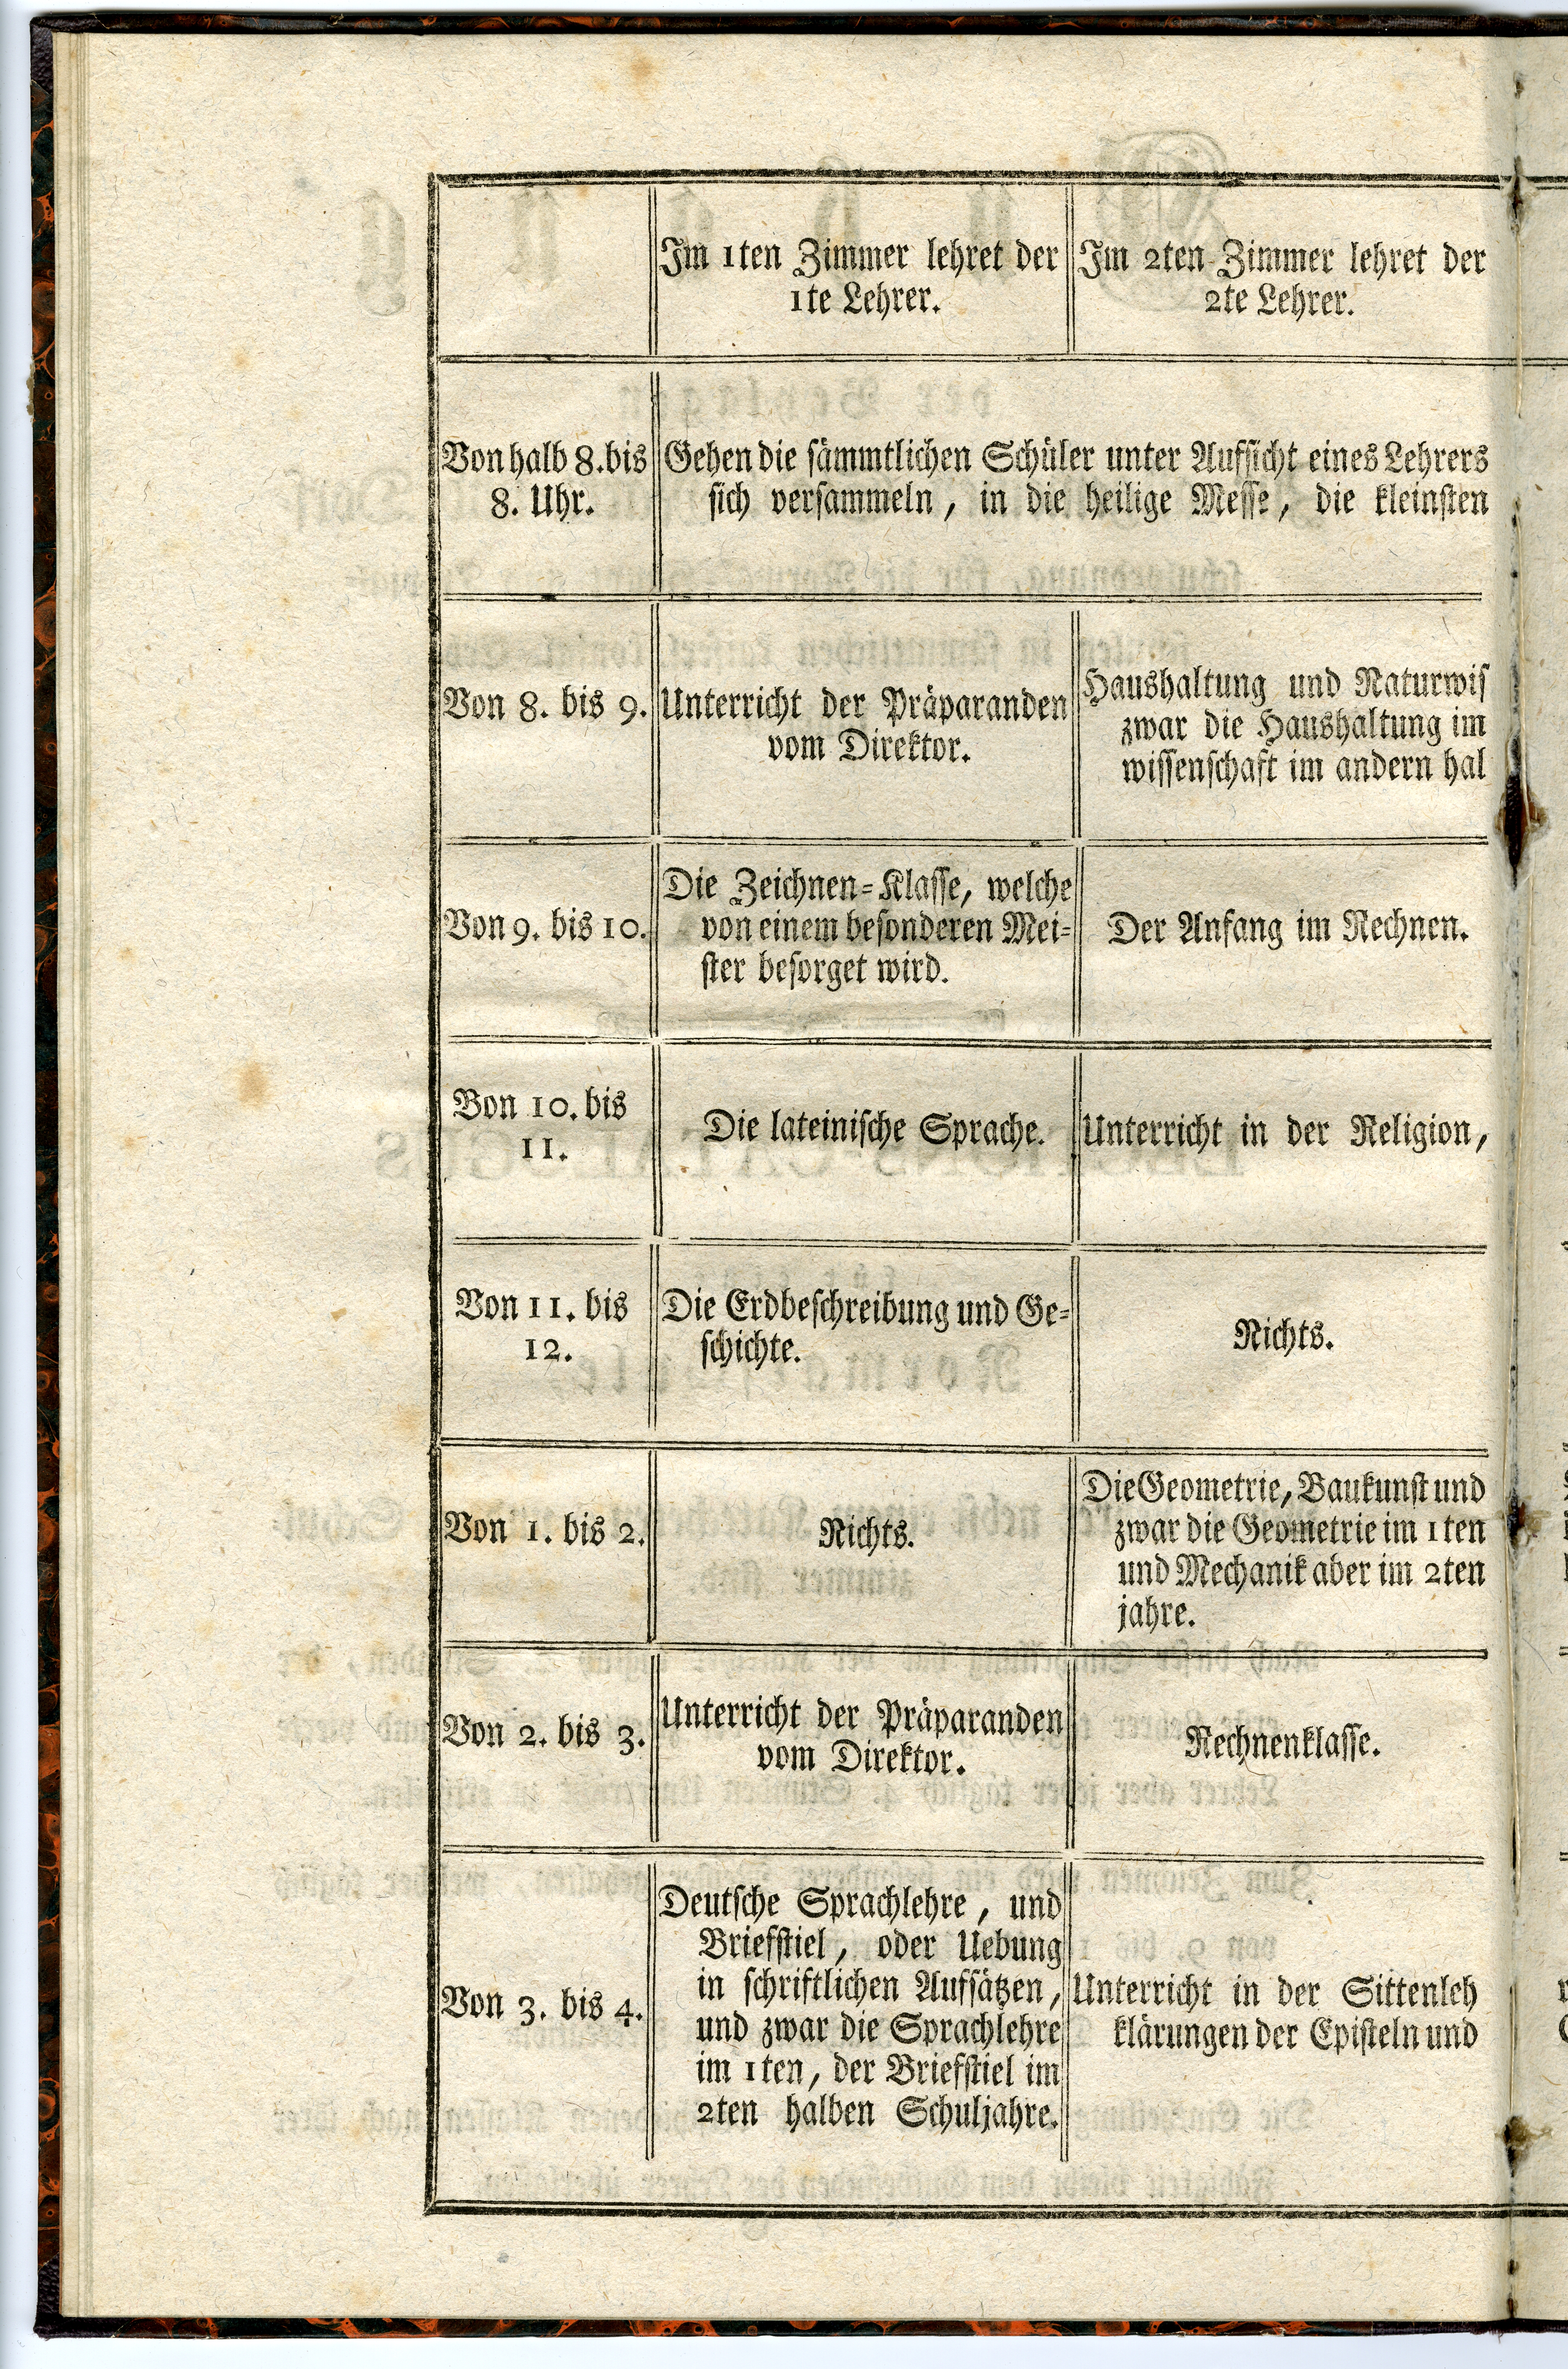 Im 1ten Zimmer lehret der
1te Lehrer.
Im 2ten Zimmer lehret der
2te Lehrer.
Von halb 8. bis
8. Uhr.
Gehen die sämmtlichen Schüler unter Aufsicht eines Lehrers
sich versammeln, in die heilige Messe, die kleinsten
Von 8. bis 9.
Unterricht der Präparanden
vom Direktor.
Haushaltung und Naturwis
zwar die Haushaltung im
wissenschaft im andern hal
Von 9. bis 10.
Die Zeichnen-Klasse, welche
von einem besonderen Mei-
ster besorget wird.
Der Anfang im Rechnen.
Von 10. bis
11.
Die lateinische Sprache.
Unterricht in der Religion,
Von 11. bis
12.
Die Erdbeschreibung und Ge-
schichte.
Nichts.
Von 1. bis 2.
Nichts.
Die Geometrie, Baukunst und
zwar die Geometrie im 1ten
und Mechanik aber im 2ten
jahre.
Von 2. bis 3.
Unterricht der Präparanden
vom Direktor.
Rechnenklasse.
Von 3. bis 4.
Deutsche Sprachlehre, und
Briefstiel, oder Uebung
in schriftlichen Aufsätzen,
und zwar die Sprachlehre
im 1ten, der Briefstiel im
2ten halben Schuljahre.
Unterricht in der Sittenleh
klärungen der Episteln und